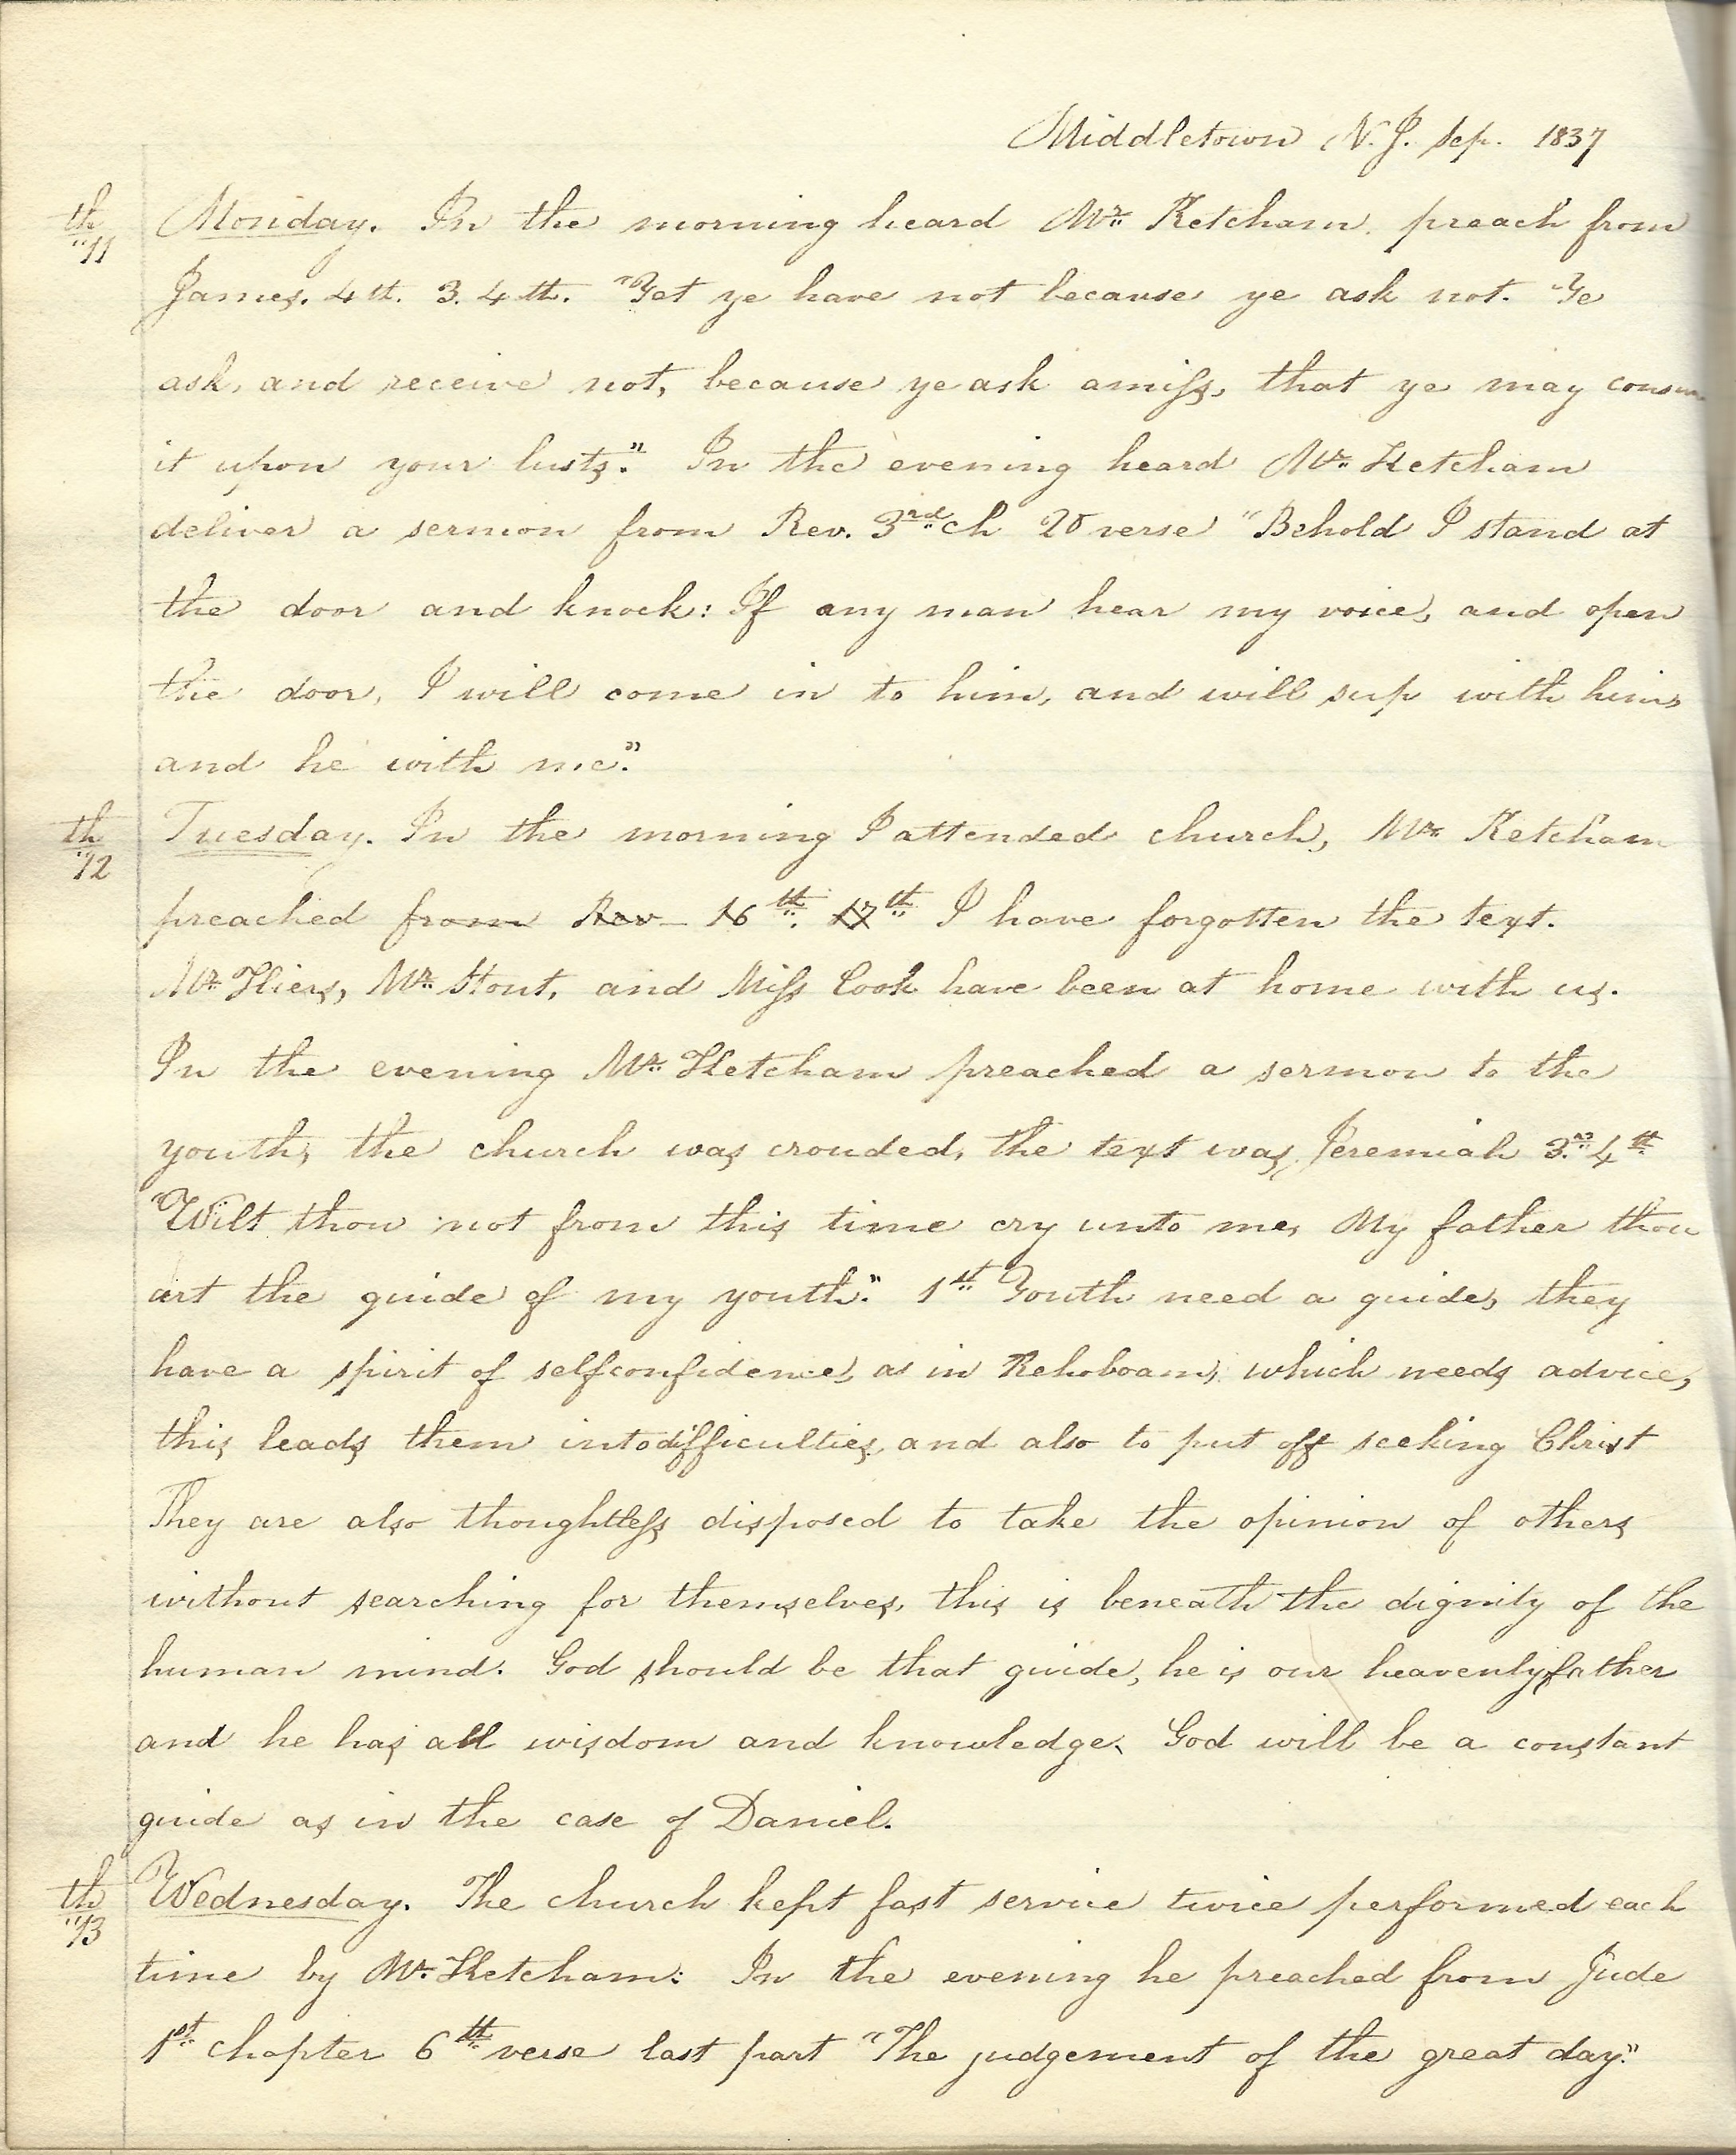 Middletown N.J. Sep. 1837
th 11 Monday. In the morning heard Mr. Ketcham preach from
James. 4th. 3. 4th. "Yet ye have not because ye ask not. "Ye
ask, and receive not, because ye ask amiss, that ye may
it upon your lusts." In the evening heard Mr. Ketcham
deliver a sermon from Rev. 3rd ch 20 verse "Behold I stand at
the door and knock: If any man hear my voice, and open
the door, I will come in to him, and will sup with him,
and he with me."
th 12 Tuesday. In the morning I attended church, Mr. Ketcham
preached from Rev 16th. 17th I have forgotten the text.
Mr. Hiers, Mr. Stout, and Miss Cook have been at home with us.
In the evening Mr. Ketcham preached a sermon to the
youth, the church was crouded, the text was, Jeremiah 3. 4th
"Wilt thou not from this time cry unto me, My father thou
art the guide of my youth." 1st Youth need a guide, they
have a spirit of selfconfidence, as in Rehoboam, which needs advice,
this leads them into difficulties, and also to put off seeking Christ
They are also thoughtless, disposed to take the opinion of others
without searching for themselves, this is beneath the dignity of the
human mind. God should be that guide, he is our heavenly father
and he has all wisdom and knowledge, God will be a constant
guide as in the case of Daniel.
th 13 Wednesday. The church kept fast service twice performed each
time by Mr. Ketcham: In the evening he preached from Jude
1st chapter 6th verse last part "The judgement of the great day."